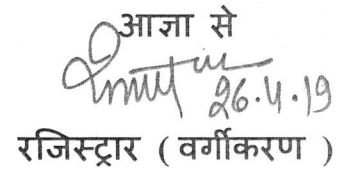 आज्ञा से
26.4.19
रजिस्ट्रार ( वर्गीकरण )